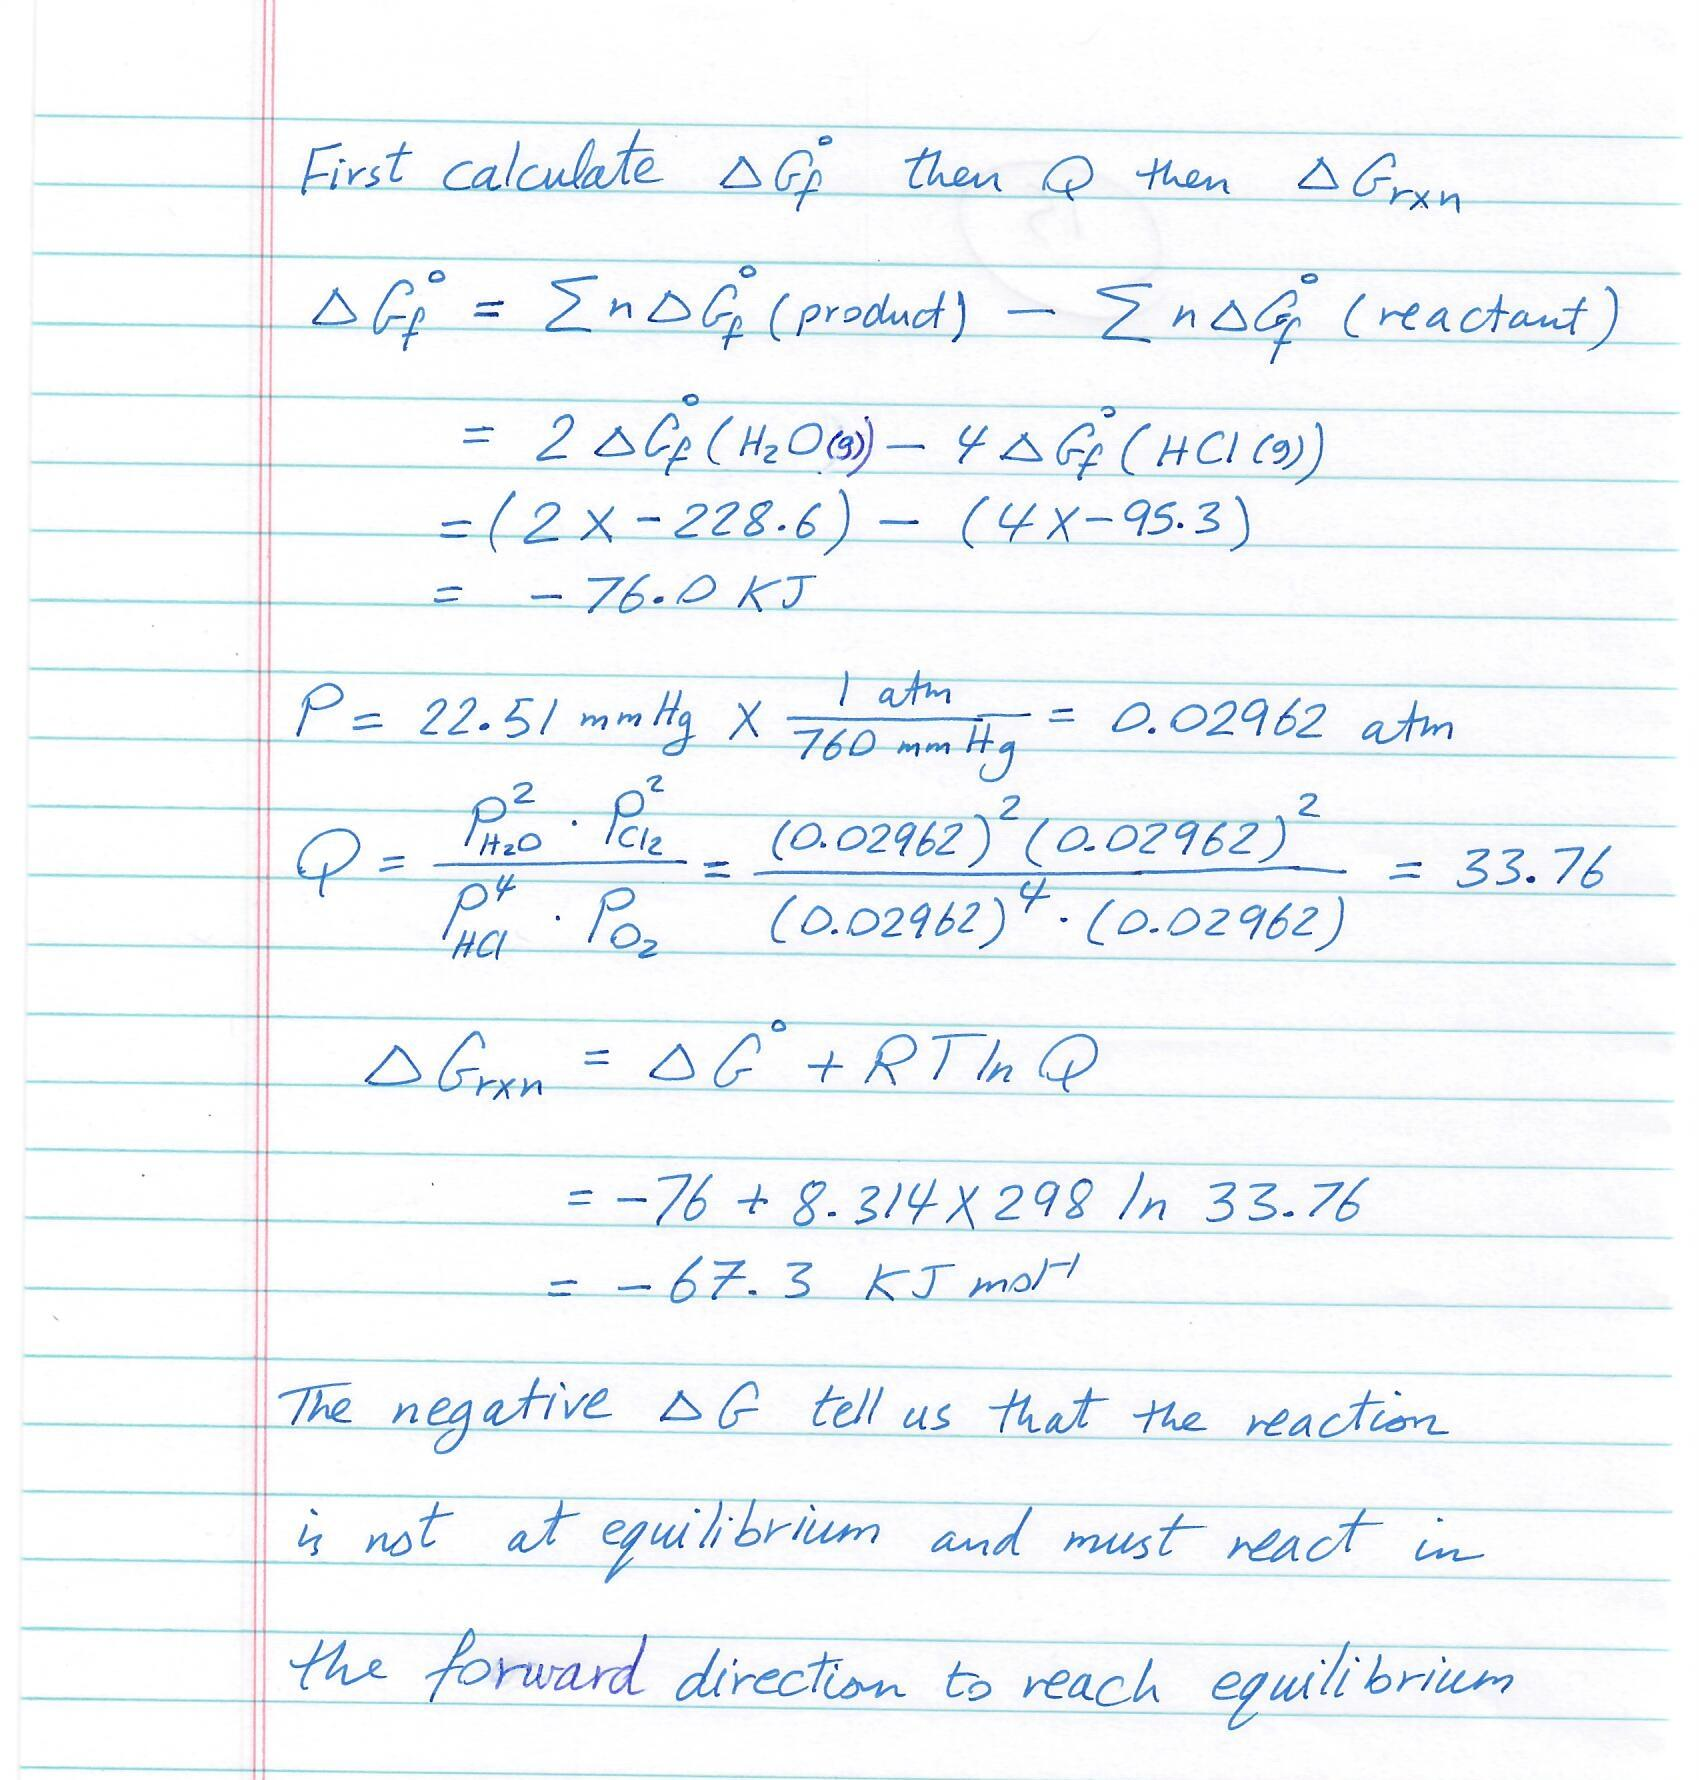 First calculate ΔG°f then Q then ΔGrxn
ΔG°f = Σ n ΔG°f (product) — Σ n ΔG°f (reactant)
= 2 ΔG°f (H₂O(g)) — 4 ΔG°f (HCl(g))
= (2 × -228.6) — (4 × -95.3)
= -76.0 KJ
P = 22.51 mmHg × 1 atm / 760 mmHg = 0.02962 atm
Q = P²H₂O · P²Cl₂ / P⁴HCl · PO₂ = (0.02962)² (0.02962)² / (0.02962)⁴ · (0.02962) = 33.76
ΔGrxn = ΔG° + RT ln Q
= -76 + 8.314 × 298 ln 33.76
= -67.3 KJ mol⁻¹
The negative ΔG tell us that the reaction
is not at equilibrium and must react in
the forward direction to reach equilibrium